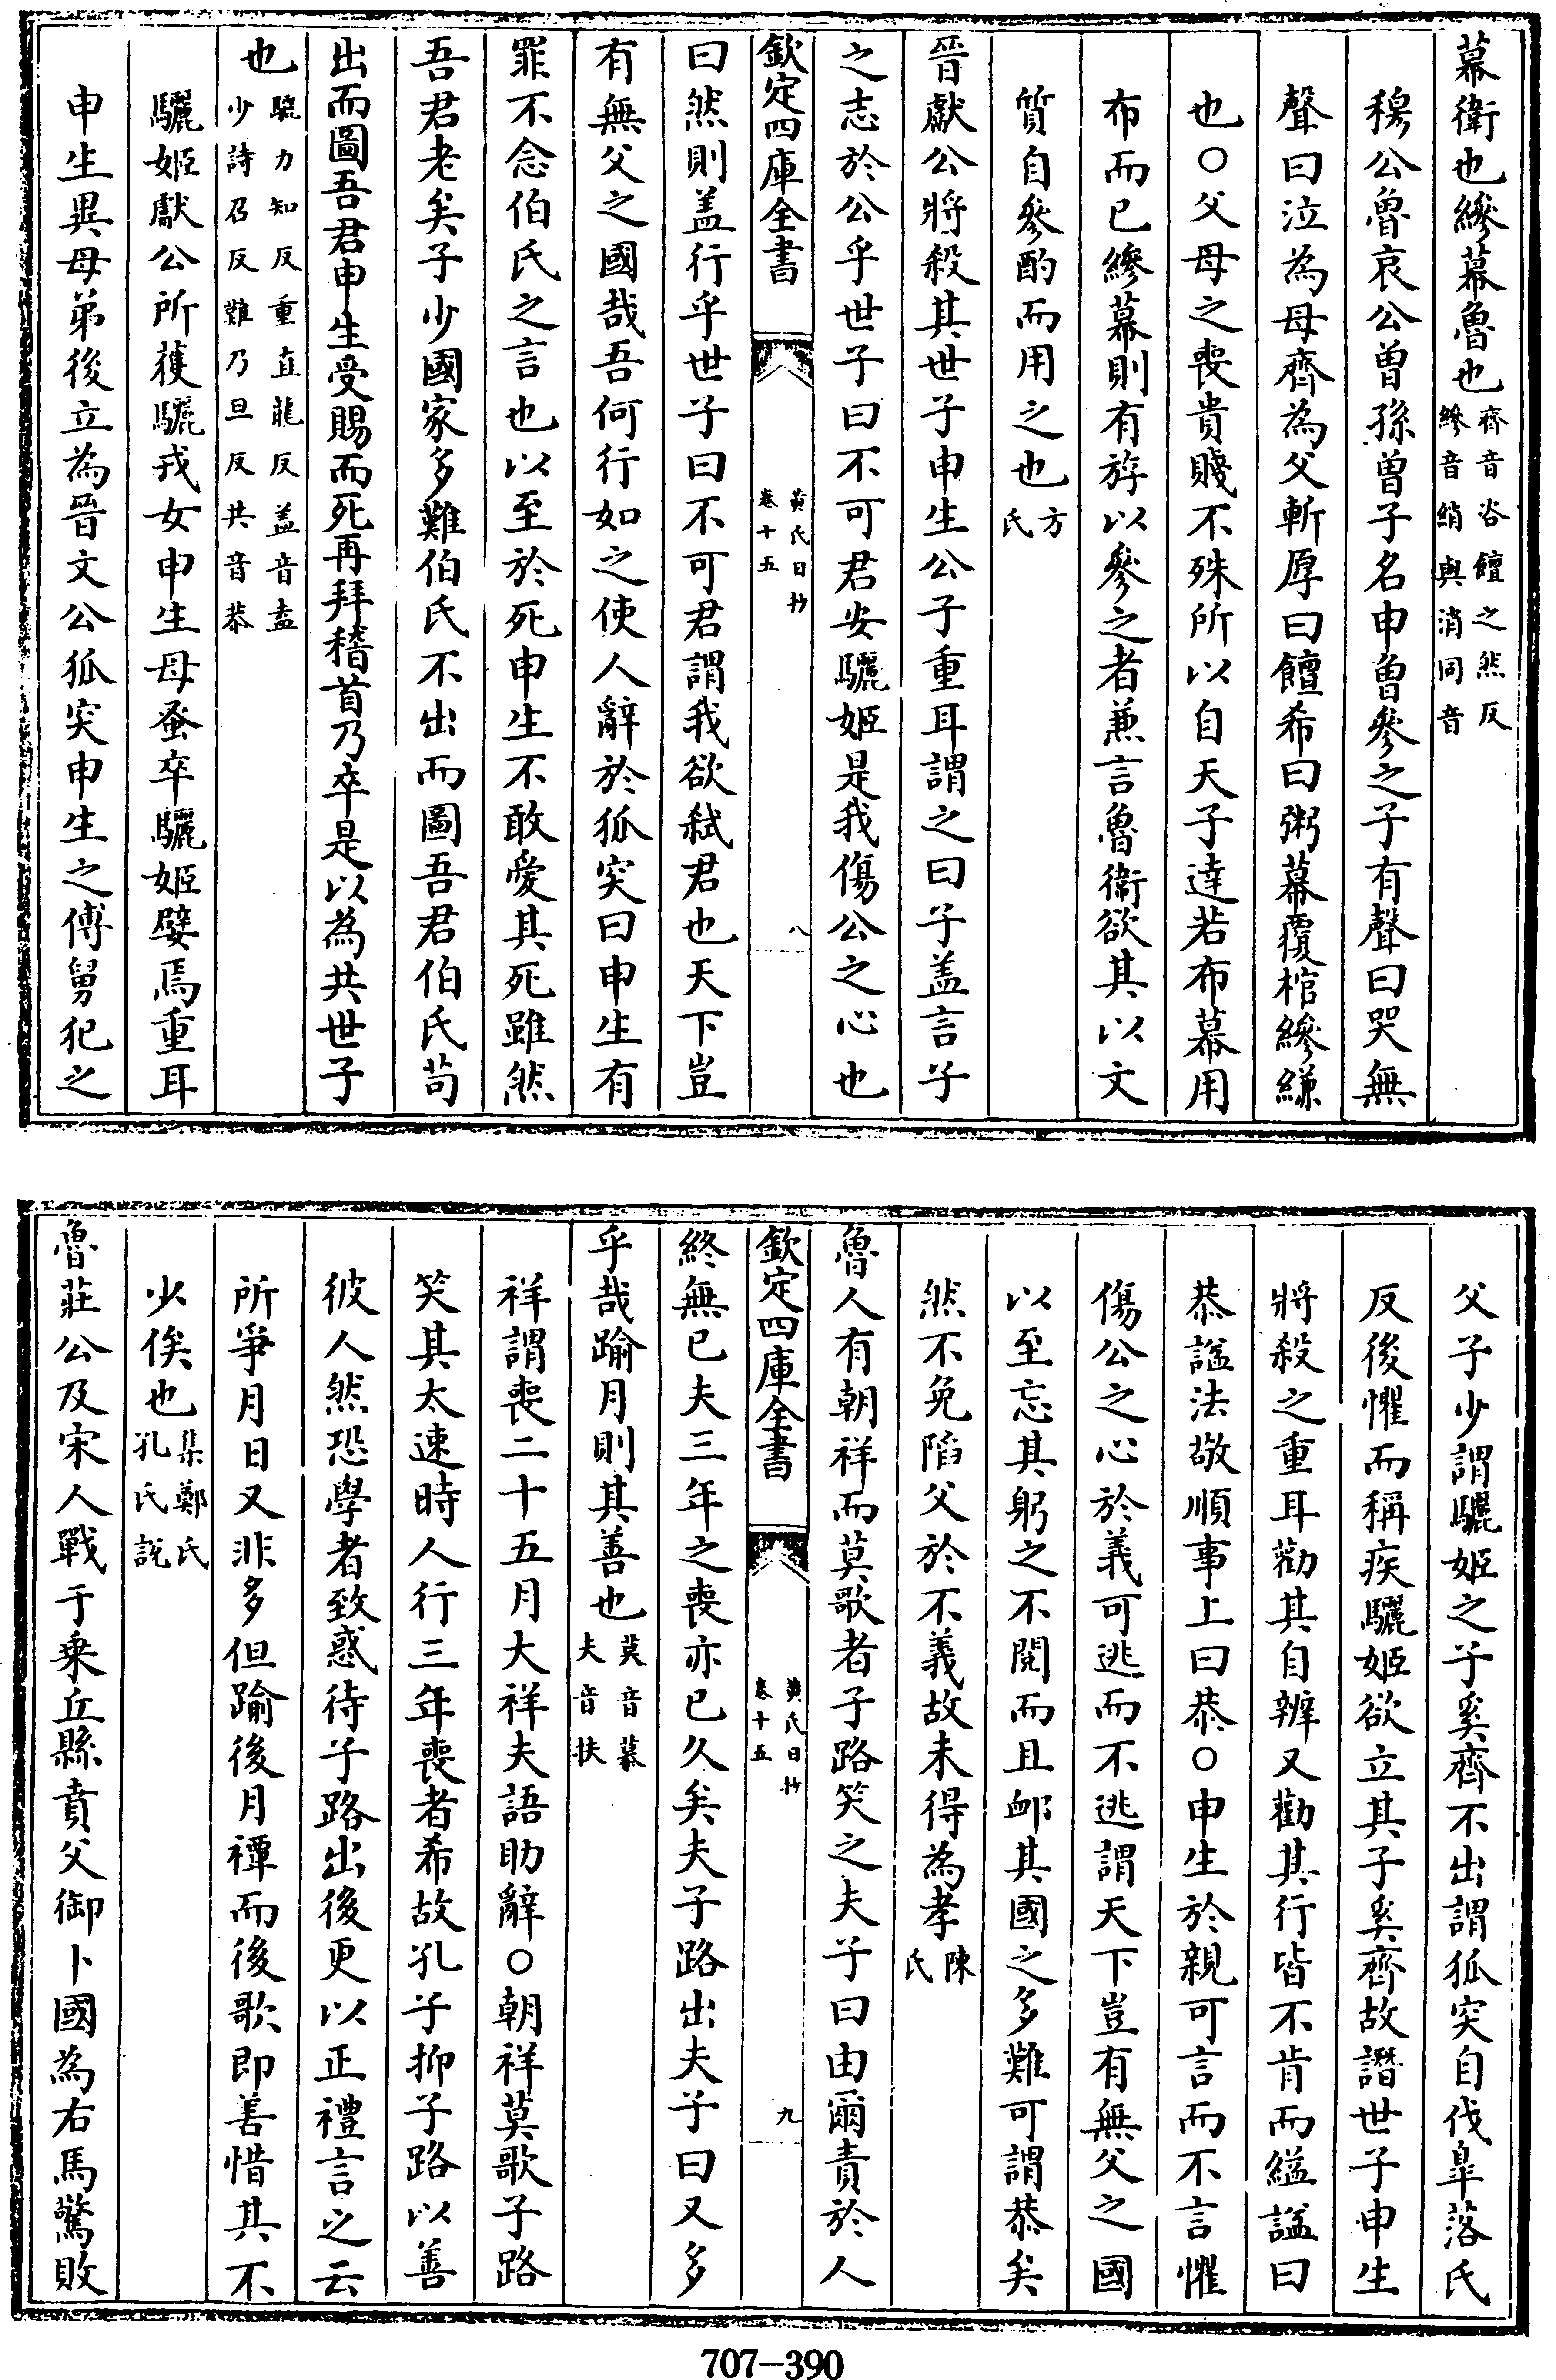 幕衛也縿幕魯也齊音咨饘之然反
縿音綃與消同音
穆公魯哀公曽孫曽子名申魯參之子有聲曰哭無
聲曰泣為母齊為父斬厚曰饘希曰粥幕覆棺縿縑
也○父母之喪貴賤不殊所以自天子達若布幕用
布而已縿幕則有斿以參之者兼言魯衛欲其以文
質自參酌而用之也方
氏
晉獻公將殺其世子申生公子重耳謂之曰子盖言子
之志於公乎世子曰不可君安驪姬是我傷公之心也
欽定四庫全書
黄氏日抄
卷十五
八
曰然則盖行乎世子曰不可君謂我欲弑君也天下豈
有無父之國哉吾何行如之使人辭於狐突曰申生有
罪不念伯氏之言也以至於死申生不敢愛其死雖然
吾君老矣子少國家多難伯氏不出而圖吾君伯氏苟
出而圖吾君申生受賜而死再拜稽首乃卒是以為共世子
也驪力知反重直龍反盖音盍
少詩召反難乃旦反共音恭
驪姬獻公所䕶驪戎女申生母蚤卒驪姬嬖焉重耳
申生異母弟後立為晉文公狐突申生之傅舅犯之
父子少謂驪姬之子奚齊不出謂狐突自伐臯落氏
反後懼而稱疾驪姬欲立其子奚齊故譖世子申生
將殺之重耳勸其自辨又勸其行皆不肯而縊諡曰
恭諡法敬順事上曰恭○申生於親可言而不言懼
傷公之心於義可逃而不逃謂天下豈有無父之國
以至忘其躬之不閱而且䘏其國之多難可謂恭矣
然不免陷父於不義故未得為孝陳
氏
魯人有朝祥而莫歌者子路笑之夫子曰由爾責於人
欽定四庫全書
黄氏日抄
卷十五
九
終無已夫三年之喪亦已久矣夫子路出夫子曰又多
乎哉踰月則其善也莫音慕
夫音扶
祥謂喪二十五月大祥夫語助辭○朝祥莫歌子路
笑其太速時人行三年喪者希故孔子抑子路以善
彼人然恐學者致惑待子路出後更以正禮言之云
所爭月日又非多但踰後月禫而後歌即善惜其不
少俟也集鄭氏
孔氏說
魯莊公及宋人戰于乗丘縣賁父御卜國為右馬驚敗
707—390